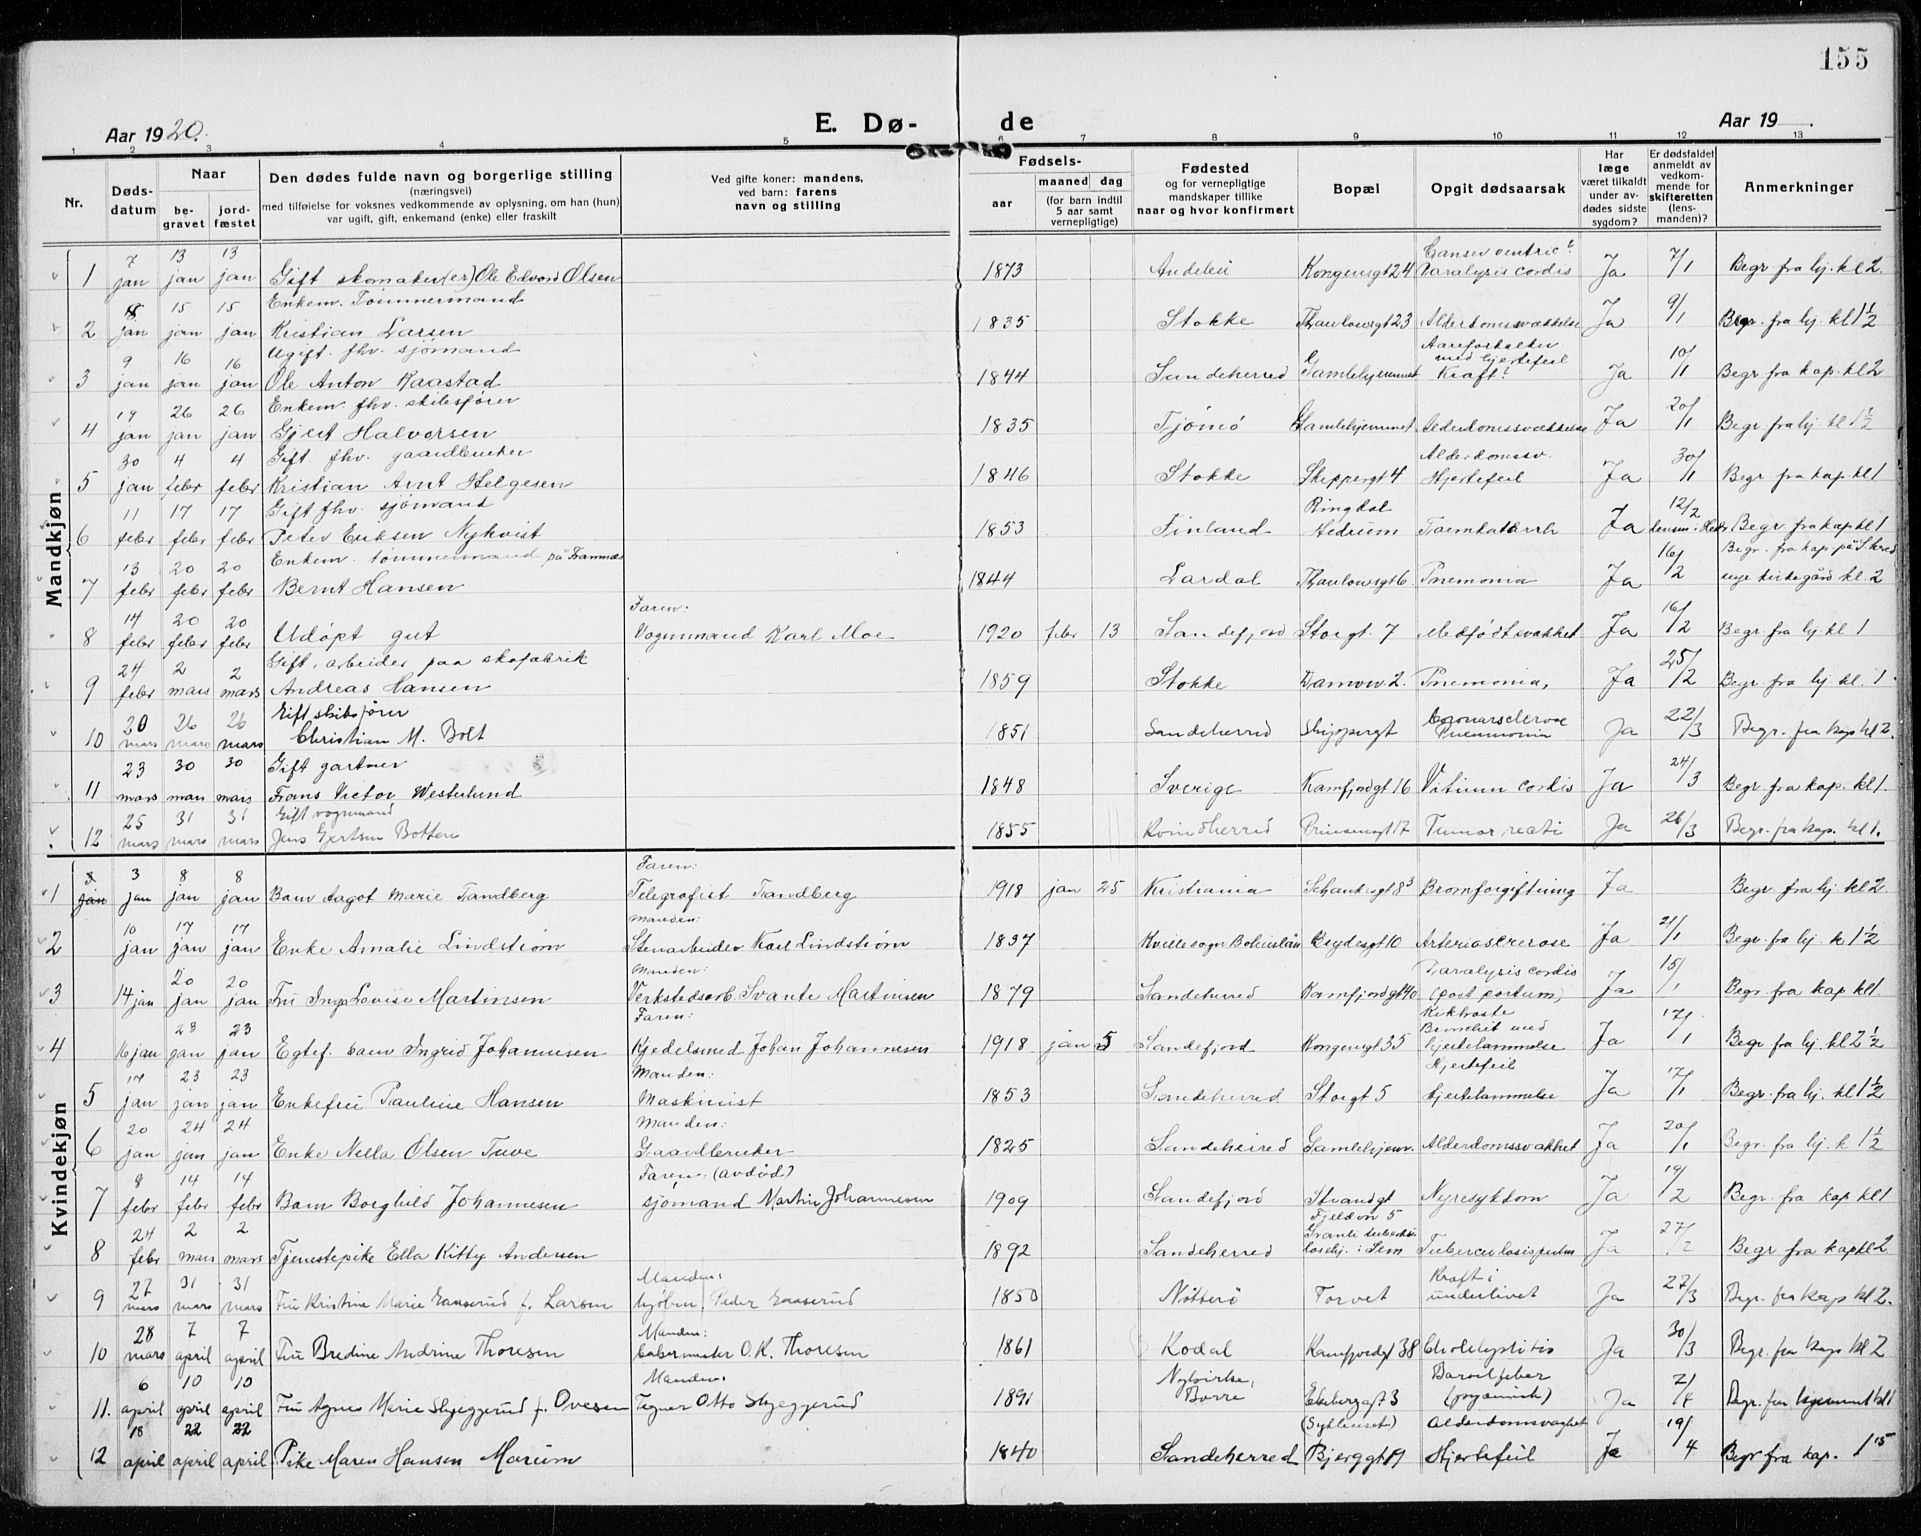 155
Aar 1920.
E. Dø-
de
Aar 19
1 2 3 4 5 6 7 8 9 10 11 12 13
Nr.
Døds-
datum
Naar
be-
gravet
jord-
fæstet
Den dødes fulde navn og borgerlige stilling
(næringsvei)
med tilføielse for voksnes vedkommende av oplysning, om han (hun)
var ugift, gift, enkemand (enke) eller fraskilt
Ved gifte koner: mandens,
ved barn: farens
navn og stilling
Fødsels-
aar
maaned
dag
(for barn indtil
5 aar samt
vernepligtige)
Fødested
og for vernepligtige
mandskaper tillike
naar og hvor konfirmert
Bopæl
Opgit dødsaarsak
Har
læge
været tilkaldt
under av-
dødes sidste
sygdom?
Er dødsfaldet
anmeldt av
vedkom-
mende for
skifteretten
(lens-
manden)?
Anmerkninger
Mandkjøn
1 7 jan 13 jan 13 jan Gift skomaker(er) Ole Edvard Olsen 1873 Kongensgt 24 Cancer ventric. Paralysis cordis Ja 7/1 Begr fra hj. kl 2.
2 8 jan 15 jan 15 jan Enkem. Tømmermand
Kristian Larsen 1835 Stokke Thaulowsgt 23 Alderdomssvækkelse Ja 9/1 Begr. fra hj. kl 1½
3 9 jan 16 jan 16 jan Ugift. fhv. sjømand
Ole Anton Kaastad 1844 Sandeherred Gamlehjemmet Aareforkalker med hjertefeil Kraft? Ja 10/1 Begr fra kap. kl 2
4 19 jan 26 jan 26 jan Enkem. fhv. skibsfører
Gjert Halvorsen 1835 Tjømø Gamlehjemmet Alderdomssvækkelse Ja 20/1 Begr fra hj. kl 1½
5 30 jan 4 febr 4 febr Gift. fhv. gaardbruker
Kristian Arnt Helgesen 1846 Stokke Skippergt 4 Alderdomssv. Hjertefeil Ja 30/1 Begr fra kap. kl 1
6 11 febr 17 febr 17 febr Gift fhv. sjømand
Peter Eriksen Nykvist 1853 Finland Ringdal Hedrum Tarmkatarrh Ja 12/2 Begr fra kap kl 1
7 13 febr 20 febr 20 febr Enkem. tømmermand på Framnæs
Bernt Hansen 1844 Lardal Thaulowsgt 6 Pnemonia Ja 16/2 Begr. fra kap på nye kirkegård kl. 2
8 14 febr 20 febr 20 febr Udøpt gut Faren: Vognmand Karl Moe 1920 febr 13 Sandefjord Storgt. 7 Medfødt svakhet Ja 16/2 Begr fra hj. kl 1
9 24 febr 2 mars 2 mars Gift. arbeider paa skofabrik
Andreas Hansen 1859 Stokke Damvn 2. Pnemonia, Ja 25/2 Begr fra hj kl. 1
10 20 mars 26 mars 26 mars Gift skibsfører
Christian M. Bolt 1851 Sandeherred Skippergt Coronarsclerose Pneumonia Ja 22/3 Begr. fra kap kl 2.
11 23 mars 30 mars 30 mars Gift gartner
Frans Victor Westerlund 1848 Sverige Kamfjordgt 16 Vitium cordis Ja 24/3 Begr fra kap. kl 1.
12 25 mars 31 mars 31 mars Gift vognmand
Jens Gjertsen Botten 1855 Kvindherred Prinsensgt 17 Tumor recti Ja 26/3 Begr. fra kap. kl 1.
Kvindekjøn
1 3 jan 8 jan 8 jan Barn Aagot Marie Tandberg Faren: Telegrafist Tandberg 1918 jan 25 Kristiania Schanksgt 8³ Bromforgiftning Ja Begr fra hj. kl 2.
2 10 jan 17 jan 17 jan Enke Amalie Lindstrøm Manden: Stenarbeider Karl Lindstrøm 1837 Kvillesogn Bohuslän Grydesgt 10 Arterioscrerose Ja 21/1 Begr fra hj. k 1½
3 14 jan 20 jan 20 jan Fru Inga Lovise Martinsen Manden: Verkstedsarb. Svante Martinsen 1879 Sandeherred Kamfjordgt 40 Paralysis cordis (post partum) Ja 15/1 Begr. fra kap kl 1.
4 16 jan 23 jan 23 jan Egtef. barn Ingrid Johannesen Faren: Kjedelsmed Johan Johannesen 1918 jan 5 Sandefjord Kongensgt 35 Kikhoste Bronchit med hjertelammelse Ja 17/1 Begr fra hj. kl 2½
5 17 jan 23 jan 23 jan Enkefru Pauline Hansen Manden: Maskinist 1853 Sandeherred Storgt 5 Hjertefeil Hjertelammelse Ja 17/1 Begr. fra hj. kl 1½
6 20 jan 24 jan 24 jan Enke Nella Olsen Tuve Manden: Gaardbruker 1825 Sandeherred Gamlehjem. Alderdomssvakhet Ja 20/1 Begr. fra hj. k 1½
7 8 febr 14 febr 14 febr Barn Borghild Johannesen Faren: (avdød) sjømand Martin Johannesen 1909 Sandefjord Strandgt Nyresykdom Ja 19/2 Begr. fra kap kl 1
8 24 febr 2 mars 2 mars Tjenestepike Ella Kitty Andersen 1892 Sandeherred Fjeldvn 5 Granli tuberkulosehj. i Sem Tuberculosis pulm Ja 27/2 Begr fra kap kl 2
9 27 mars 31 mars 31 mars Fru Kristine Marie Gaaserud f. Larsen Manden: kjøbm. Peder Gaaserud 1850 Nøtterø Torvet Kraft i underlivet Ja 27/3 Begr. fra kap kl 2.
10 28 mars 7 april 7 april Fru Bredine Andrine Thoresen Manden: Bakermester O. K. Thoresen 1861 Kodal Kamfjordgt 38 Cholecystitis Ja 30/3 Begr. fra kap kl 2
11. 6 april 10 april 10 april Fru Agnes Marie Skjeggerud f. Ovesen Manden: Tegner Otto Skjeggerud 1891 Nykirke, Borre Ekebergsgt 3 Barselfeber (pyæmisk) Ja 7/4 Begr. fra hjemmet kl 1
12 18 april 22 april 22 april Pike Maren Hansen Marum 1840 Sandeherred Bjerggt 19 Alderdomsvaghet Hjertefeil Ja 19/4 Begr fra kap. 1¹⁵